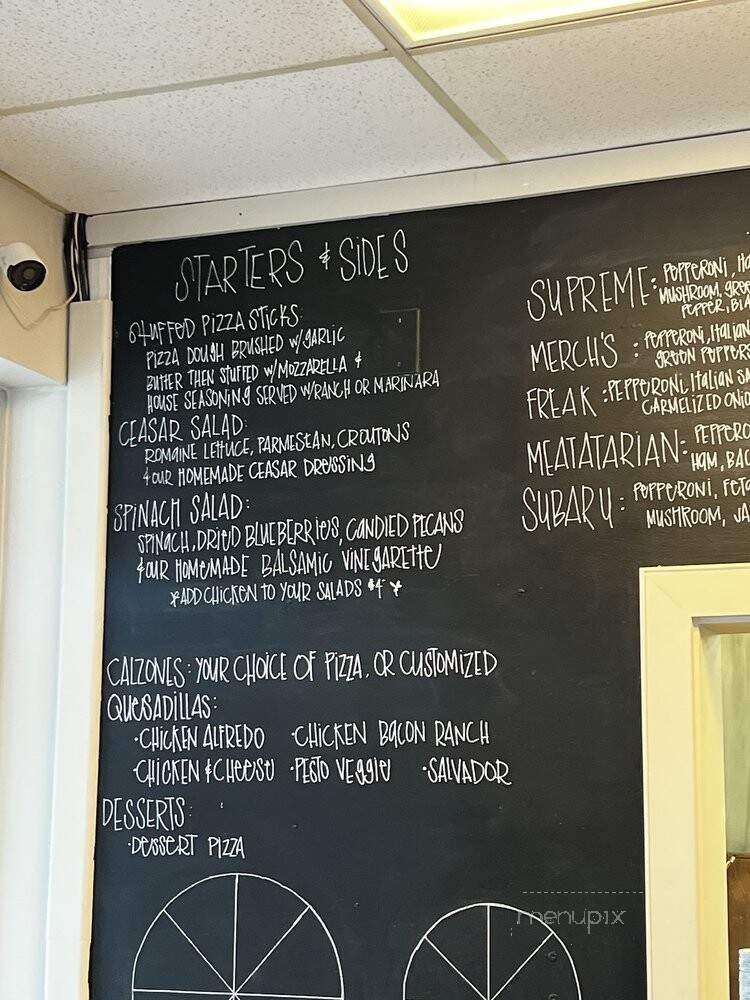 STARTERS & SIDES
STUFFED PIZZA STICKS:
PIZZA DOUGH BRUSHED W/GARLIC
BUTTER THEN STUFFED W/MOZZARELLA &
HOUSE SEASONING SERVED W/RANCH OR MARINARA
CEASAR SALAD:
ROMAINE LETTUCE, PARMESEAN, CROUTONS
& OUR HOMEMADE CEASAR DRESSING
SPINACH SALAD:
SPINACH, DRIED BLUEBERRIES, CANDIED PECANS
& OUR HOMEMADE BALSAMIC VINEGARETTE
*ADD CHICKEN TO YOUR SALADS $4 *
CALZONES: YOUR CHOICE OF PIZZA, OR CUSTOMIZED
QUESADILLAS:
·CHICKEN ALFREDO ·CHICKEN BACON RANCH
·CHICKEN & CHEESE ·PESTO VEGGIE ·SALVADOR
DESSERTS:
·DESSERT PIZZA
SUPREME: PEPPERONI,
MUSHROOM,
PEPPER,
MERCH'S : PEPPERONI, ITALIAN
GREEN PEPPERS
FREAK: PEPPERONI, ITALIAN
CARMELIZED
MEATATARIAN:
HAM,
SUBARU: PEPPERONI,
MUSHROOM,
menupix